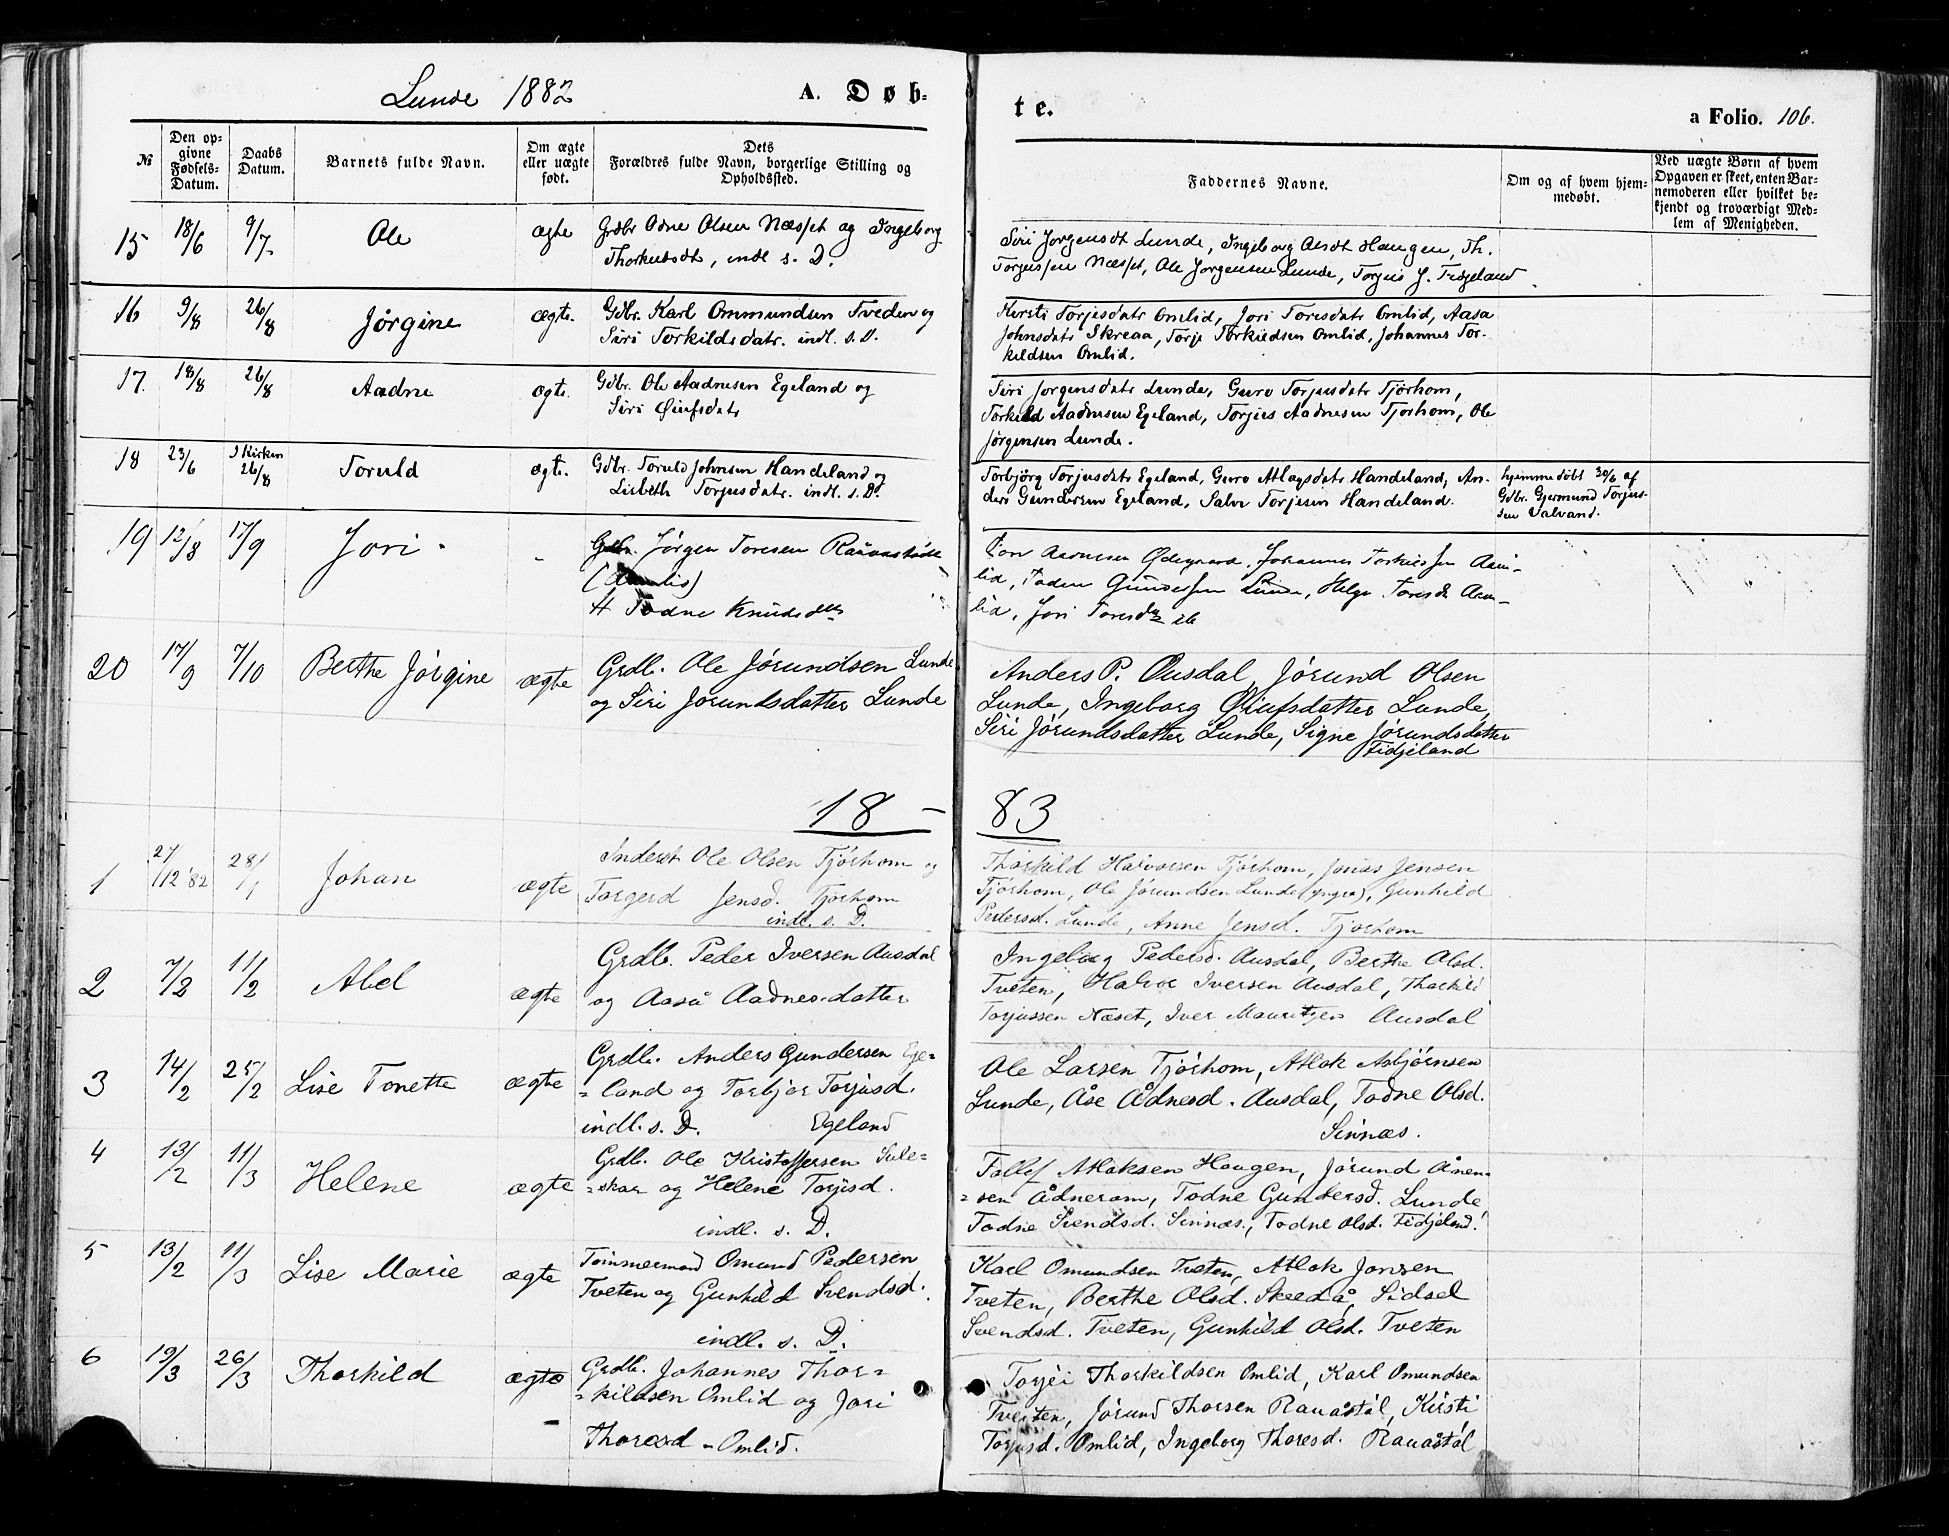 Lunde 1882 A. Døb-
te. a Folio. 106.
№ Den op-givne Fødsels-Datum. Daabs Datum. Barnets fulde Navn. Om ægte eller uægte født. Dets Forældres fulde Navn, borgerlige Stilling og Opholdssted.
Faddernes Navne. Om og af hvem hjem-medøbt. Ved uægte Børn af hvem Opgaven er skeet, enten Bar-nemoderen eller hvilket be-kjendt og troværdigt Med-lem af Menigheden.
15 18/6 9/7 Ole ægte Grdbr Odne Olsen Næsset og Ingeborg
indl s. D.
Siri Jørgensdt Lunde, Ingeborg Haugen, Th.
Torjussen Næsset, Ole Jørgensen Lunde, Torjus J. Fidjeland
16 9/8 26/8 Jørgine ægte. Gdbr. Karl Ommundsen Tveden og
Siri Torkildsdatr. indl. s. D.
Kirsti Torjesdatr Omlid, Jori Toresdatr Omlid, Aasa
Johnsdatr Skreaa, Torje Torkildsen Omlid, Johannes Tor-
kildsen Omlid.
17. 18/8 26/8 Aadne ægte. Gdbr. Ole Aadnesen Egeland og
Siri Øiufsdatr
Siri Jørgensdatr Lunde, Guro Torjusdatr Tjørhom,
Torkild Aadnesen Egeland, Torjus Aadnesen Tjørhom, Ole
Jørgensen Lunde.
18 23/6 I Kirken 26/8 Toruld ægte. Gdbr. Toruld Johnsen Handeland og
Lisbeth Torjusdatr. indl. s. D.
Torbjørg Torjusdatr Egeland, Guro Atlagsdatr Handeland, An-
ders Gundersen Egeland, Salve Torjesen Handeland.
hjemmedøbt 30/6 af
Gdbr. Gjermund Torjus-
sen Valvand.
19 12/8 17/9 Jori - Gdbr. Jørgen Toresen
Todne Knudsdtr
Tore Aadnesen Ødegaard, Johannes Torkildsen Aam-
lid, Gundersen Lunde, Helge Toresd. Aam-
lid, Jori Toresdtr ib
20 17/9 7/10 Berthe Jørgine ægte Grdb. Ole Jørundsen Lunde
og Siri Jørundsdatter Lunde
Anders P. Ousdal, Jørund Olsen
Lunde, Ingeborg Øiufsdatter Lunde,
Siri Jørundsdatter Lunde, Signe Jørundsdatter
Fidjeland
18 - 83
1 27/12 '82 28/1 Johan ægte Inderst Ole Olsen Tjørhom og
Torgerd Jensd. Tjørhom
indl. s. D.
Thorkild Halvorsen Tjørhom, Jonas Jensen
Tjørhom, Ole Jørundsen Lunde (yngre), Gunhild
Pedersd. Lunde, Anne Jensd. Tjørhom
2 7/2 11/2 Abel ægte Grdb. Peder Iversen Ausdal
og Aasa Aadnesdatter
Ingeborg Pedersd. Ausdal, Berthe Olsd.
Tveten, Halvor Iversen Ausdal, Thorkild
Torjussen Næset, Iver Mauritzen Ausdal
3 14/2 25/2 Lise Tonette ægte Grdb. Anders Gundersen Ege=
=land og Torbjør Torjusd.
indl. s. D. Egeland
Ole Larsen Tjørhom, Atlak Asbjørnsen
Lunde, Åse Ådnesd. Ausdal, Todne Olsd.
Sinnæs.
4 13/2 11/3 Helene ægte Grdb. Ole Kristoffersen Sule=
=skar og Helene Torjusd.
indl. s. D.
Tollef Atlaksen Haugen, Jørund Ånen=
=sen Ådneram, Todne Gundersd. Lunde,
Todne Svendsd. Sinnæs, Todne Olsd. Fidjeland.
5 13/2 11/3 Lise Marie ægte Tømmermand Omund Pedersen
Tveten og Gunhild Svendsd.
indl. s. D.
Karl Omundsen Tveten, Atlak Jonsen
Tveten, Berthe Olsd. Skreå, Sidsel
Svendsd. Tveten, Gunhild Olsd. Tveten
6 19/3 26/3 Thorkild ægte Grdb. Johannes Thor=
=kildsen Omlid og Jori
Thoresd Omlid.
Torjei Thorkildsen Omlid, Karl Omundsen
Tveten, Jørund Thorsen Rauåstøl, Kirsti
Torjusd. Omlid, Ingeborg Thoresd. Rauåstøl